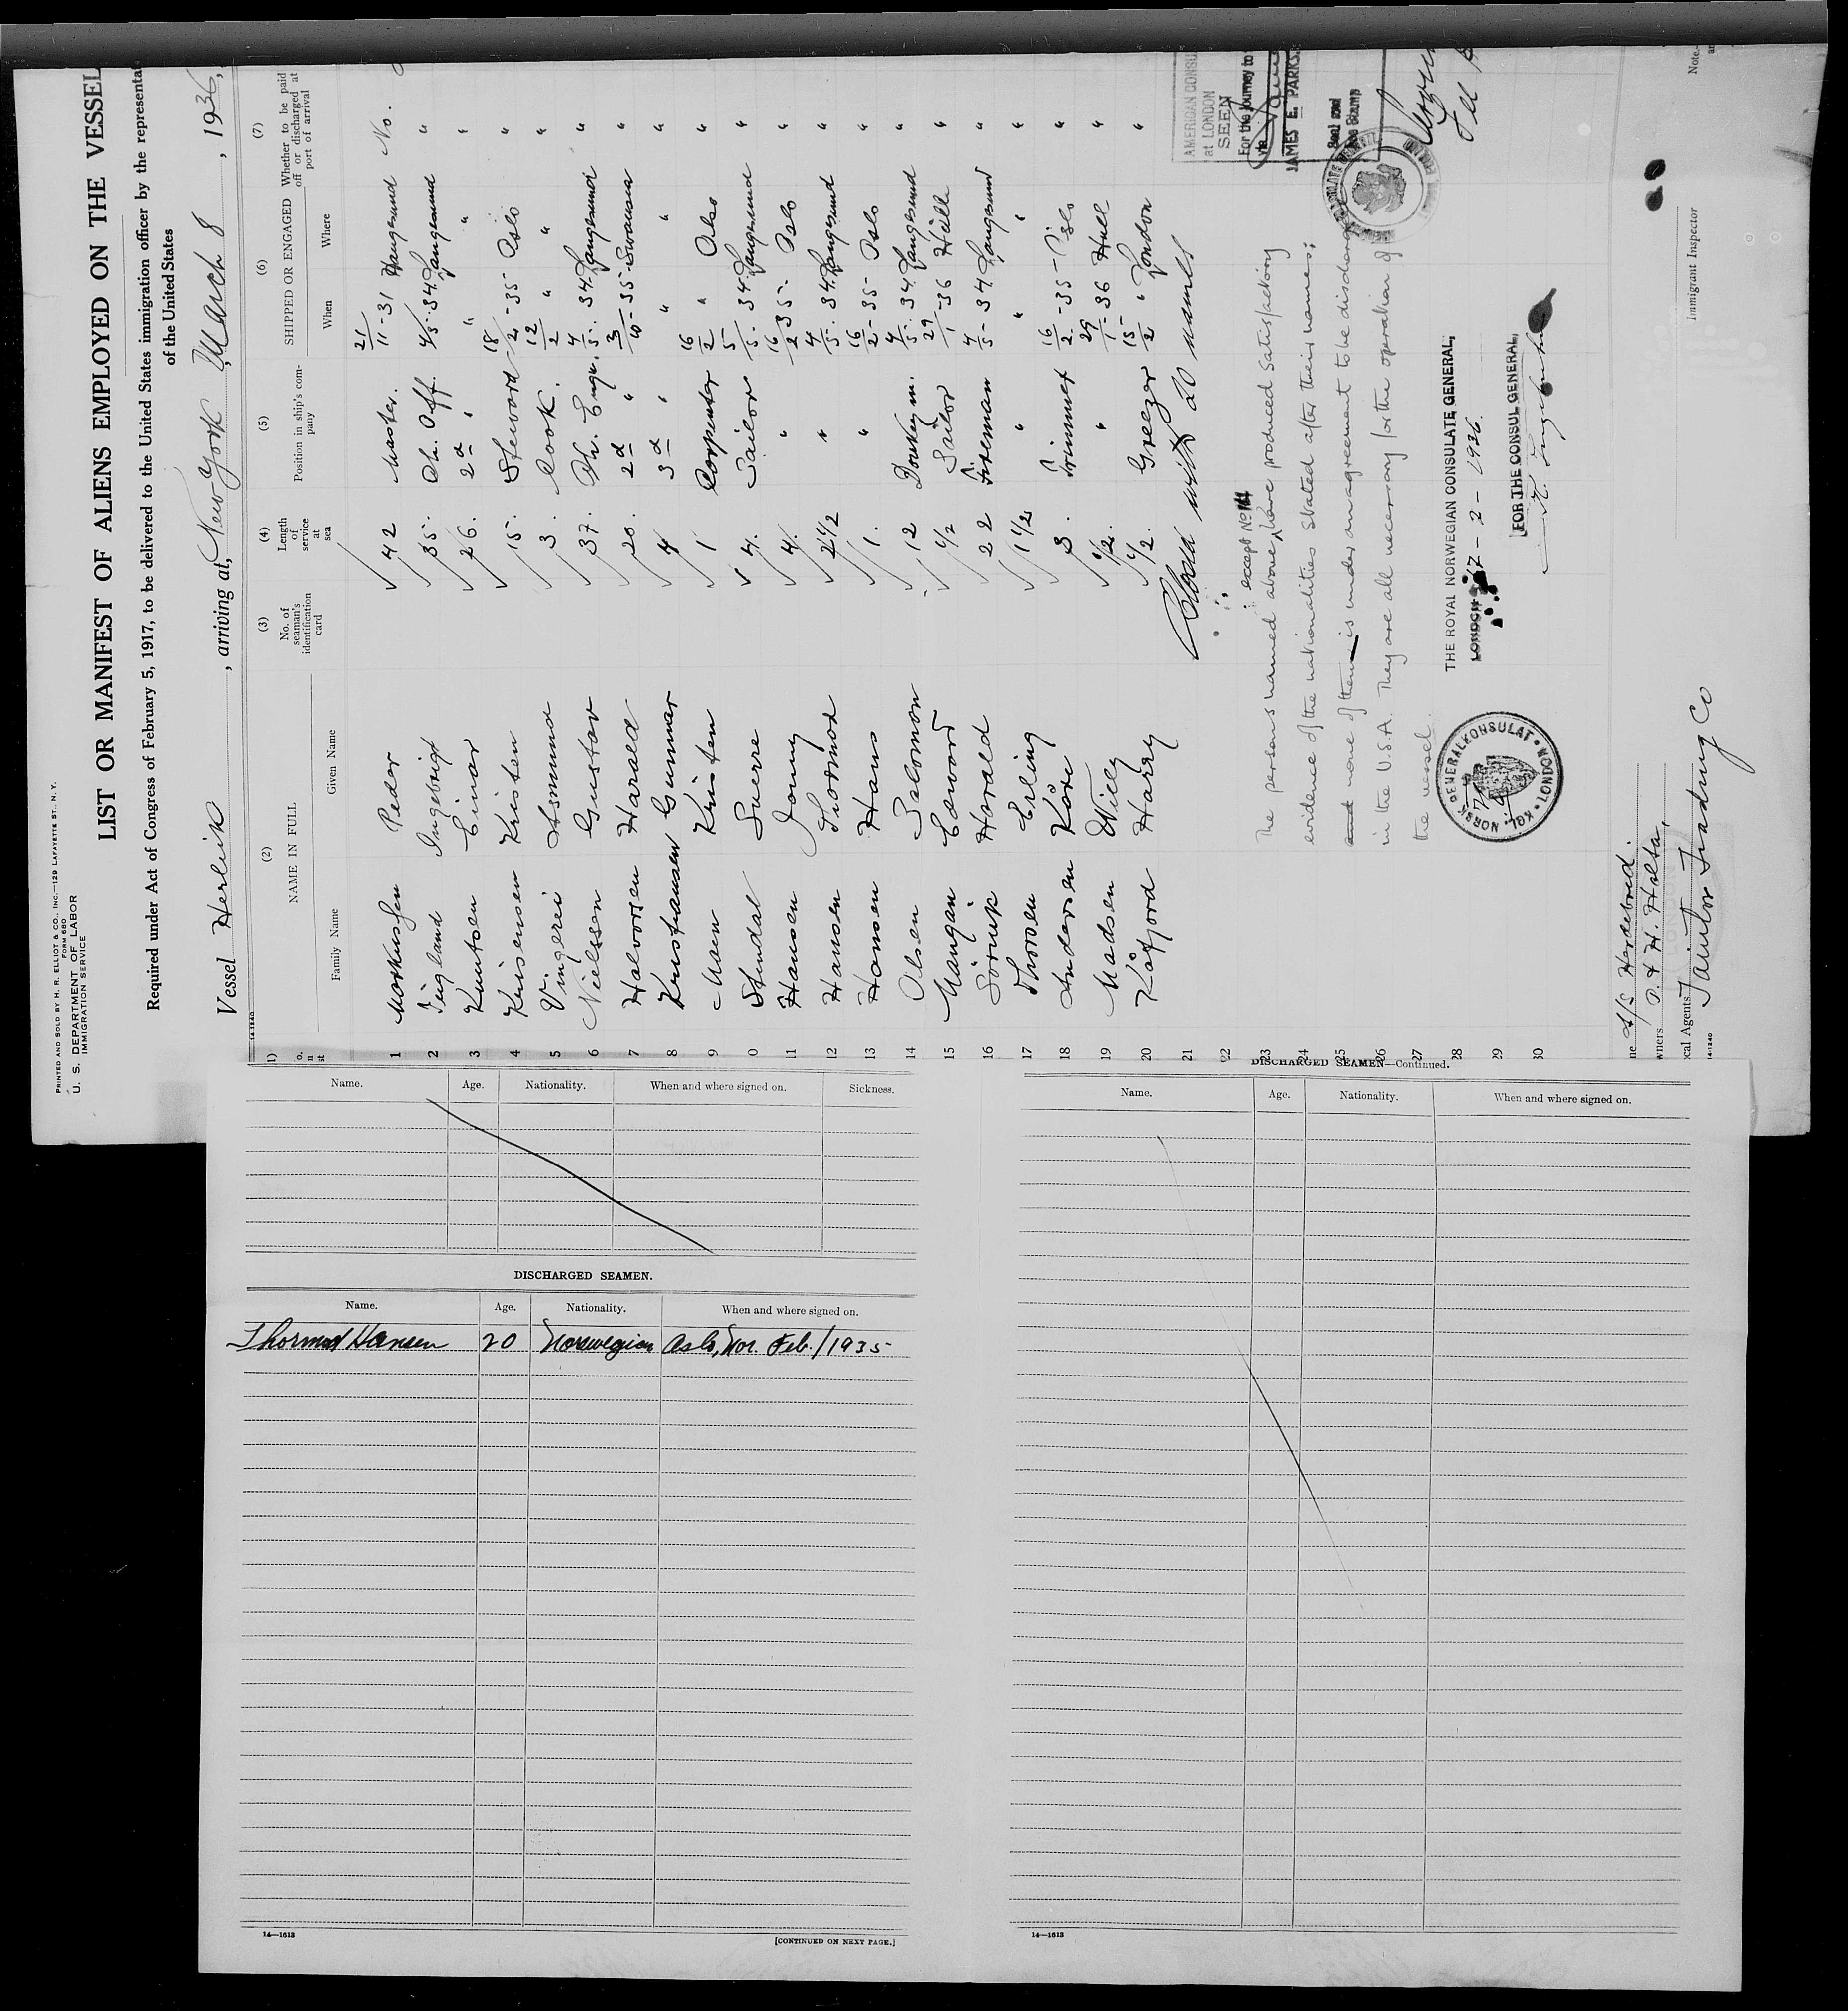 PRINTED AND SOLD BY H. R. ELLIOT & CO., INC.—129 LAFAYETTE ST., N. Y.
FORM 680
U. S. DEPARTMENT OF LABOR
IMMIGRATION SERVICE
LIST OR MANIFEST OF ALIENS EMPLOYED ON THE VESSEL
Required under Act of Congress of February 5, 1917, to be delivered to the United States immigration officer by the representat
of the United States
Vessel Herleik, arriving at New-York, March 8, 1936,
14-1240
(1) (2) (3) (4) (5) (6) (7)
NAME IN FULL No. of seaman's identification card Length of service at sea Position in ship's company SHIPPED OR ENGAGED Whether to be paid off or discharged at port of arrival
Family Name Given Name When Where
1 Markussen Peder 42 Master. 21/11-31 Haugesund No.
2 Tingland Ingebrigt 35. Ch. Off. 4/5. 34. Langesund "
3 Knutsen Einar 26. 2d " " " "
4 Kristensen Kristen 15. Steward 18/2-35 Oslo "
5 Vingerei Asmund 3. Cook. 12/2 " " "
6 Nielssen Gustav 37. Ch. Engr. 4/5. 34. Langesund "
7 Halvorsen Harald 20. 2d " 3/10-35 Swansea "
8 Kristiansen Gunnar 4 3d " " " "
9 Moen Kristen 1 Carpenter 16/2 " Oslo "
0 Stendal Sverre 4. Sailor 5/5. 34. Langesund "
11 Hansen Jonny 4. " 16/2 35. Oslo "
12 Hansen Thormod 2 1/2 " 4/5. 34. Langesund "
13 Hansen Hans 1. " 16/2-35 Oslo "
14 Olsen Salomon 12 Donkeym. 4/5. 34. Langesund "
15 Mangan Edward 1/2 Sailor 29/1-36 Hull "
16 Sörvik Harald 22 Fireman 4/5-34. Langesund "
17 Thorsen Erling 1 1/2 " " " "
18 Andersen Kåre 3. Trimmer 16/2-35 Oslo "
19 Madsen Willy 1/2. " 29/1-36 Hull "
20 Kåfjord Harry 1/2. Greezer 15/2 " London "
21
22
23
24
25
26
27
28
29
30
Closed with 20 names
except No 14
The persons named above, have produced satisfactory
evidence of the nationalities stated after their names;
and none of them is under an agreement to be discharged
in the U.S.A. They are all necessary for the operation of
the vessel.
AMERICAN CONSU
at LONDON
SEEN
For the journey to
via
JAMES E. PARKS
Seal and
Fee Stamp
THE ROYAL NORWEGIAN CONSULATE GENERAL,
LONDON 17-2-1936.
FOR THE CONSUL GENERAL,
KGL. NORSK GENERALKONSULAT • LONDON
A/S Herdebred.
wners
ocal Agents
Trading Co
14-1240
Immigrant Inspector
Note.—
Name. Age. Nationality. When and where signed on. Sickness.
DISCHARGED SEAMEN.
Name. Age. Nationality. When and where signed on.
Thormod Hansen 20 Norwegian Oslo, Nor. Feb./1935
14—1613
[CONTINUED ON NEXT PAGE.]
DISCHARGED SEAMEN—Continued.
Name. Age. Nationality. When and where signed on.
14—1613